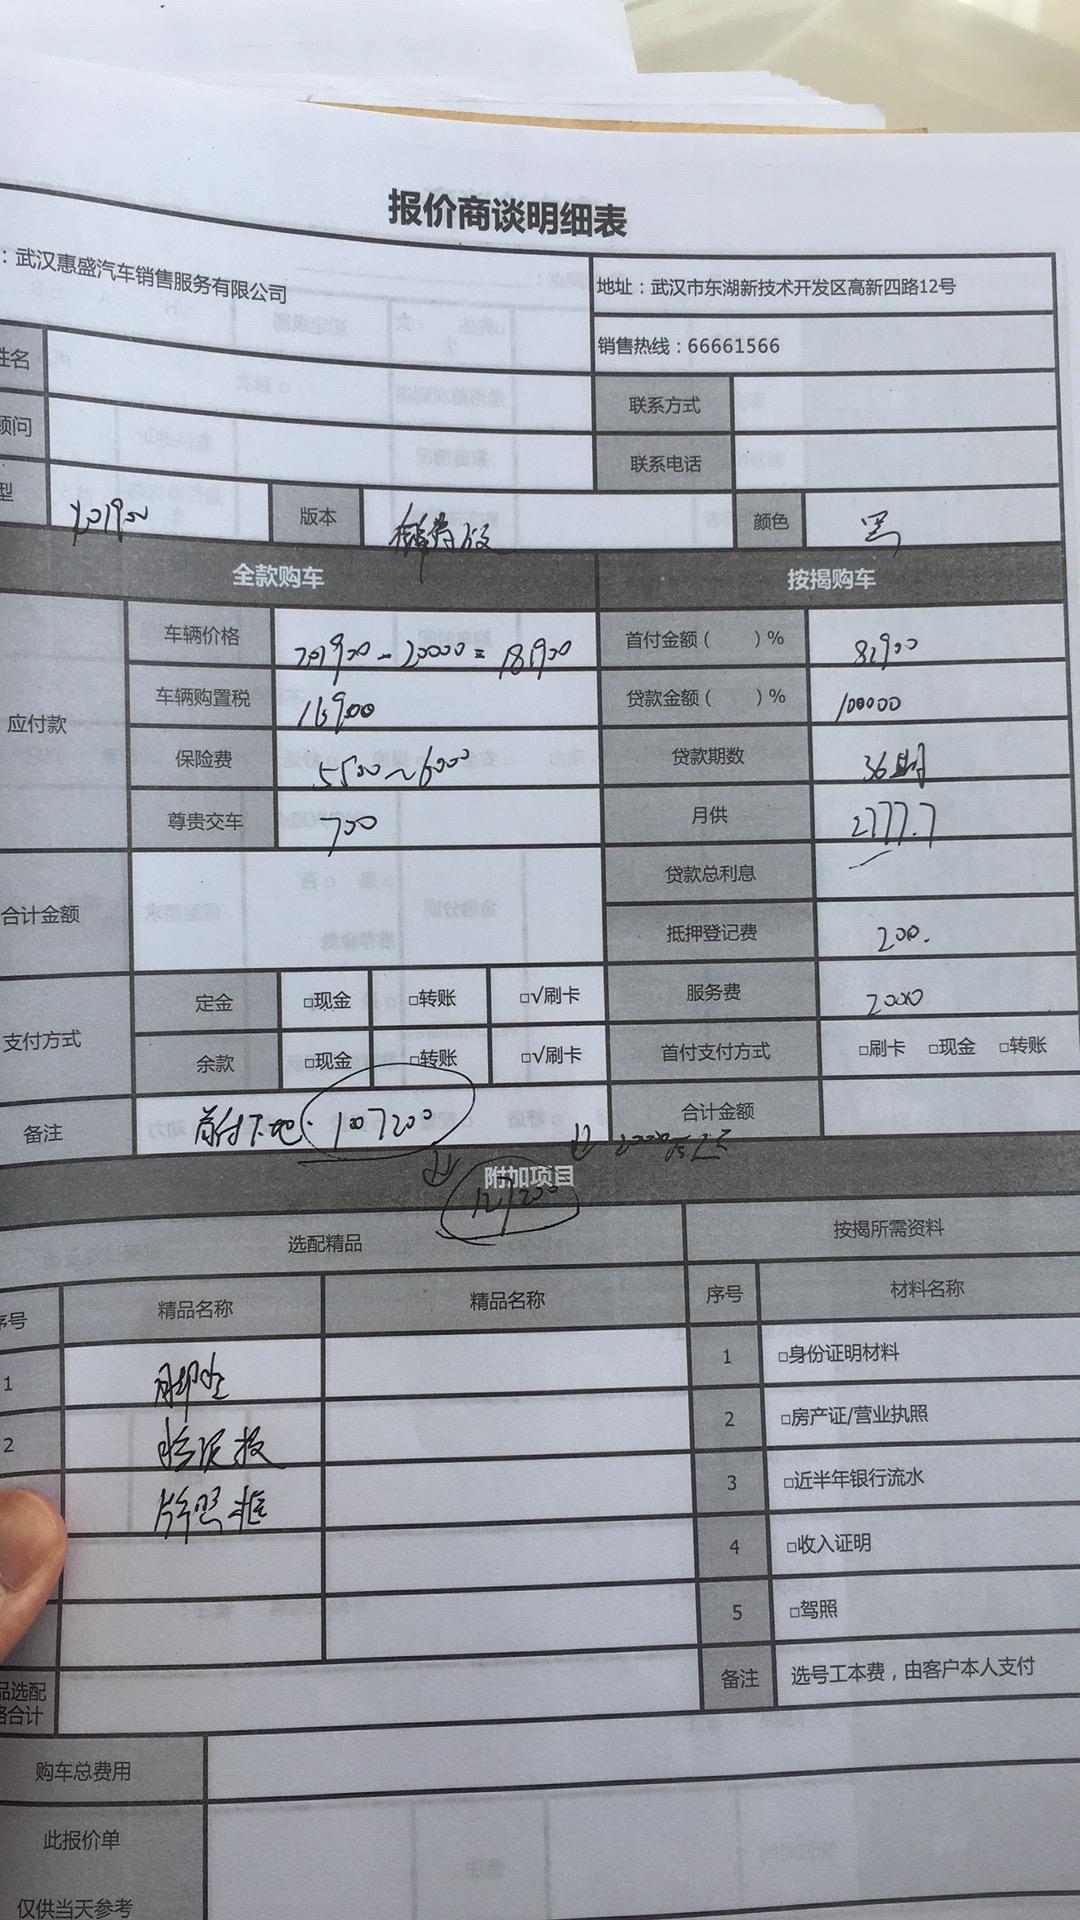 报价商谈明细表
：武汉惠盛汽车销售服务有限公司
地址：武汉市东湖新技术开发区高新四路12号
销售热线：66661566
姓名
联系方式
顾问
联系电话
型
版本
颜色 黑
全款购车 按揭购车
应付款
车辆价格 201900-20000=181900 首付金额（ ）% 81900
车辆购置税 16900 贷款金额（ ）% 100000
保险费 5500~6000 贷款期数 36期
尊贵交车 700 月供 2777.7
合计金额
贷款总利息
抵押登记费 200.
支付方式
定金 □现金 □转账 □√刷卡 服务费 2000
余款 □现金 □转账 □√刷卡 首付支付方式 □刷卡 □现金 □转账
备注 首付下地. 107200 合计金额
附加项目
127200
选配精品 按揭所需资料
序号 精品名称 精品名称 序号 材料名称
1 脚垫 1 □身份证明材料
2 2 □房产证/营业执照
牌照框 3 □近半年银行流水
4 □收入证明
5 □驾照
备注 选号工本费，由客户本人支付
品选配
合计
购车总费用
此报价单
仅供当天参考